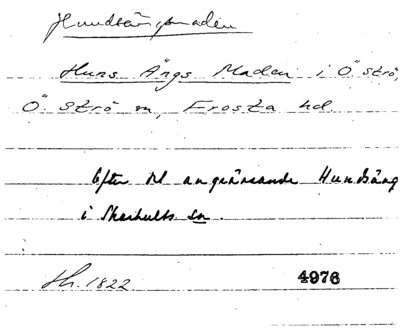 Hundsängsmaden
Huns Ängs Maden i Ö. Strö,
Ö. Strö sn, Frosta hd.
Efter det angränsande Hunsäng
i Skarhults sn.
Sk. 1822 4976